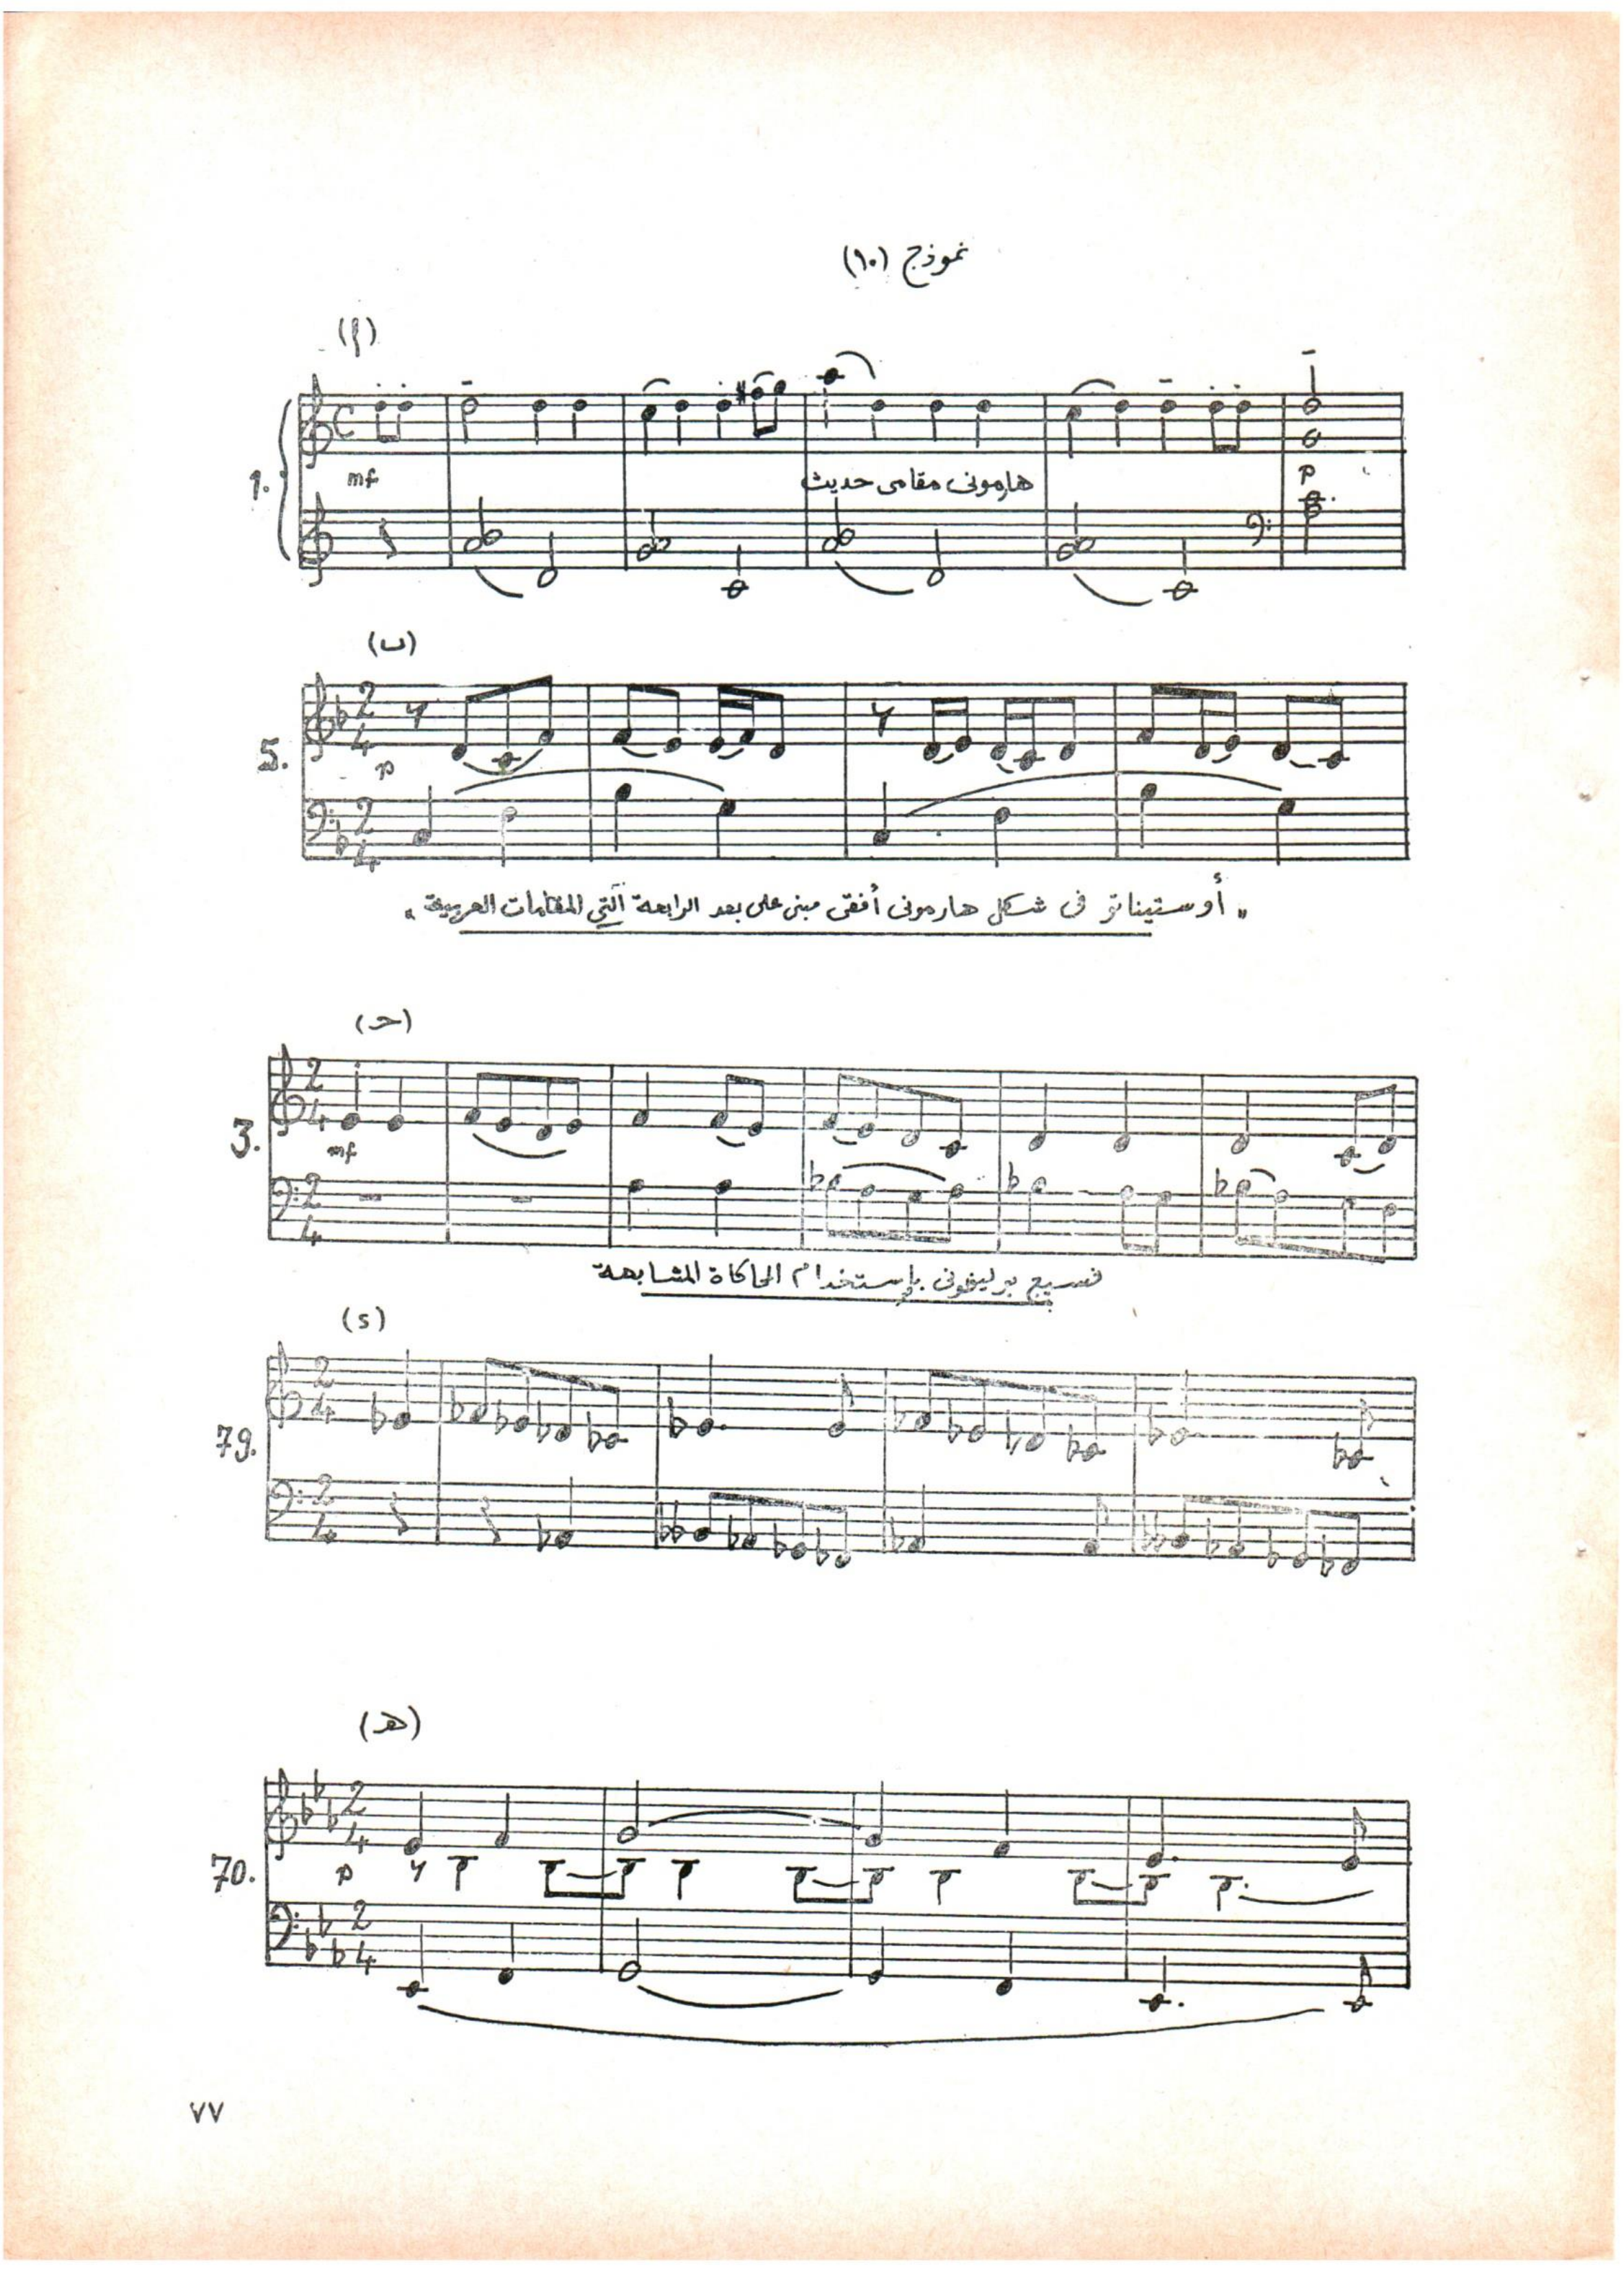 نموذج (١٠)
(أ)
1.
mf
هارمونى مقامى حديث
p
(ب)
5.
2
4
p
2
4
" أوستيناتو فى شكل هارمونى أفقى مبنى على بعد الرابعة التي المقامات العربية "
(حـ)
3.
2
4
mf
2
4
نسيج بوليفونى بإستخدام المحاكاة المتشابهة
(د)
79.
2
4
2
4
(هـ)
70.
2
4
p
2
4
٧٧